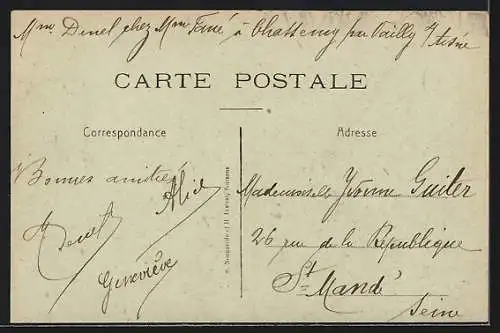 Mme Denel chez Mme Fané à Chassemy par Vailly s/ Aisne
CARTE POSTALE
Correspondance
Adresse
Bonnes amitiés
Alice
Denel
Geneviève
Mademoiselle Yvonne Guiler
26 rue de la République
St Mandé
Seine